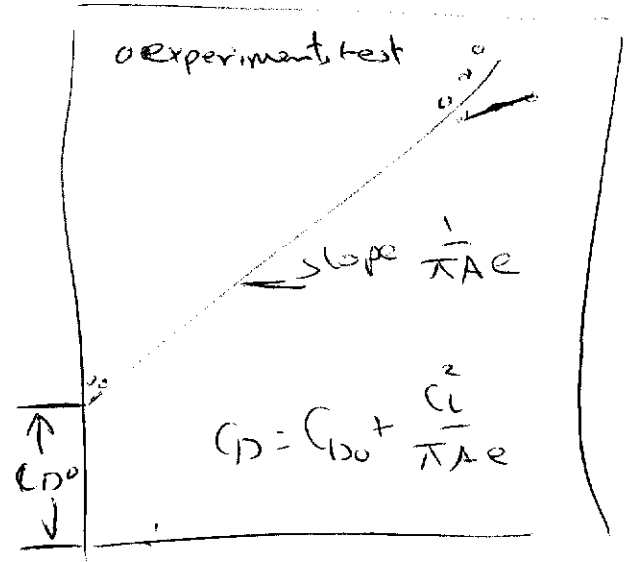 o experiments test
slope 1/πAe
C_D = C_D0 + C_L²/πAe
C_D0